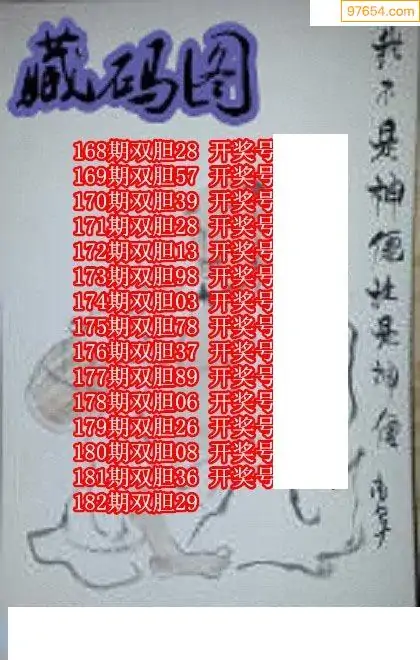 97654.com
藏码图
168期双胆28 开奖号
169期双胆57 开奖号
170期双胆39 开奖号
171期双胆28 开奖号
172期双胆13 开奖号
173期双胆98 开奖号
174期双胆03 开奖号
175期双胆78 开奖号
176期双胆37 开奖号
177期双胆89 开奖号
178期双胆06 开奖号
179期双胆26 开奖号
180期双胆08 开奖号
181期双胆36 开奖号
182期双胆29
不是神是神